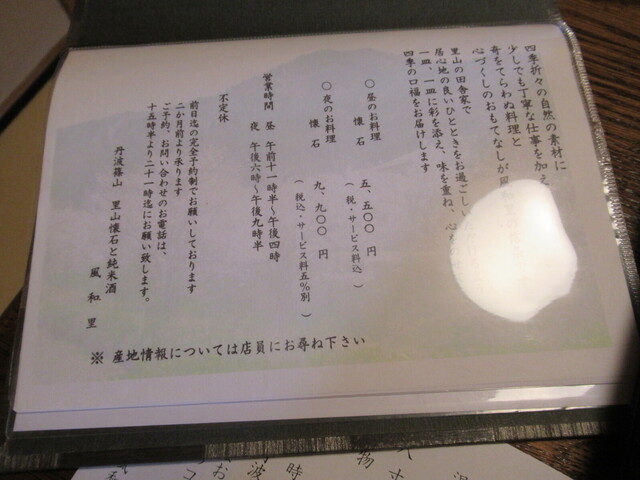 四季折々の自然の素材に
少しでも丁寧な仕事を加え
奇をてらわぬ料理と
心づくしのおもてなしが
里山の田舎家で
居心地の良いひとときをお過ごし
一皿、一皿に彩を添え、味を重ね、心
四季の口福をお届けします
○ 昼のお料理
懐石 五、五〇〇 円
( 税・サービス料込 )
○ 夜のお料理
懐石 九、九〇〇 円
( 税込・サービス料五%別 )
営業時間 昼 午前十一時半～午後四時
夜 午後六時～午後九時半
不定休
前日迄の完全予約制でお願いしております
二か月前より承ります
ご予約、お問い合わせのお電話は、
十五時半より二十一時迄にお願い致します。
丹波篠山 里山懐石と純米酒
風和里
※ 産地情報については店員にお尋ね下さい